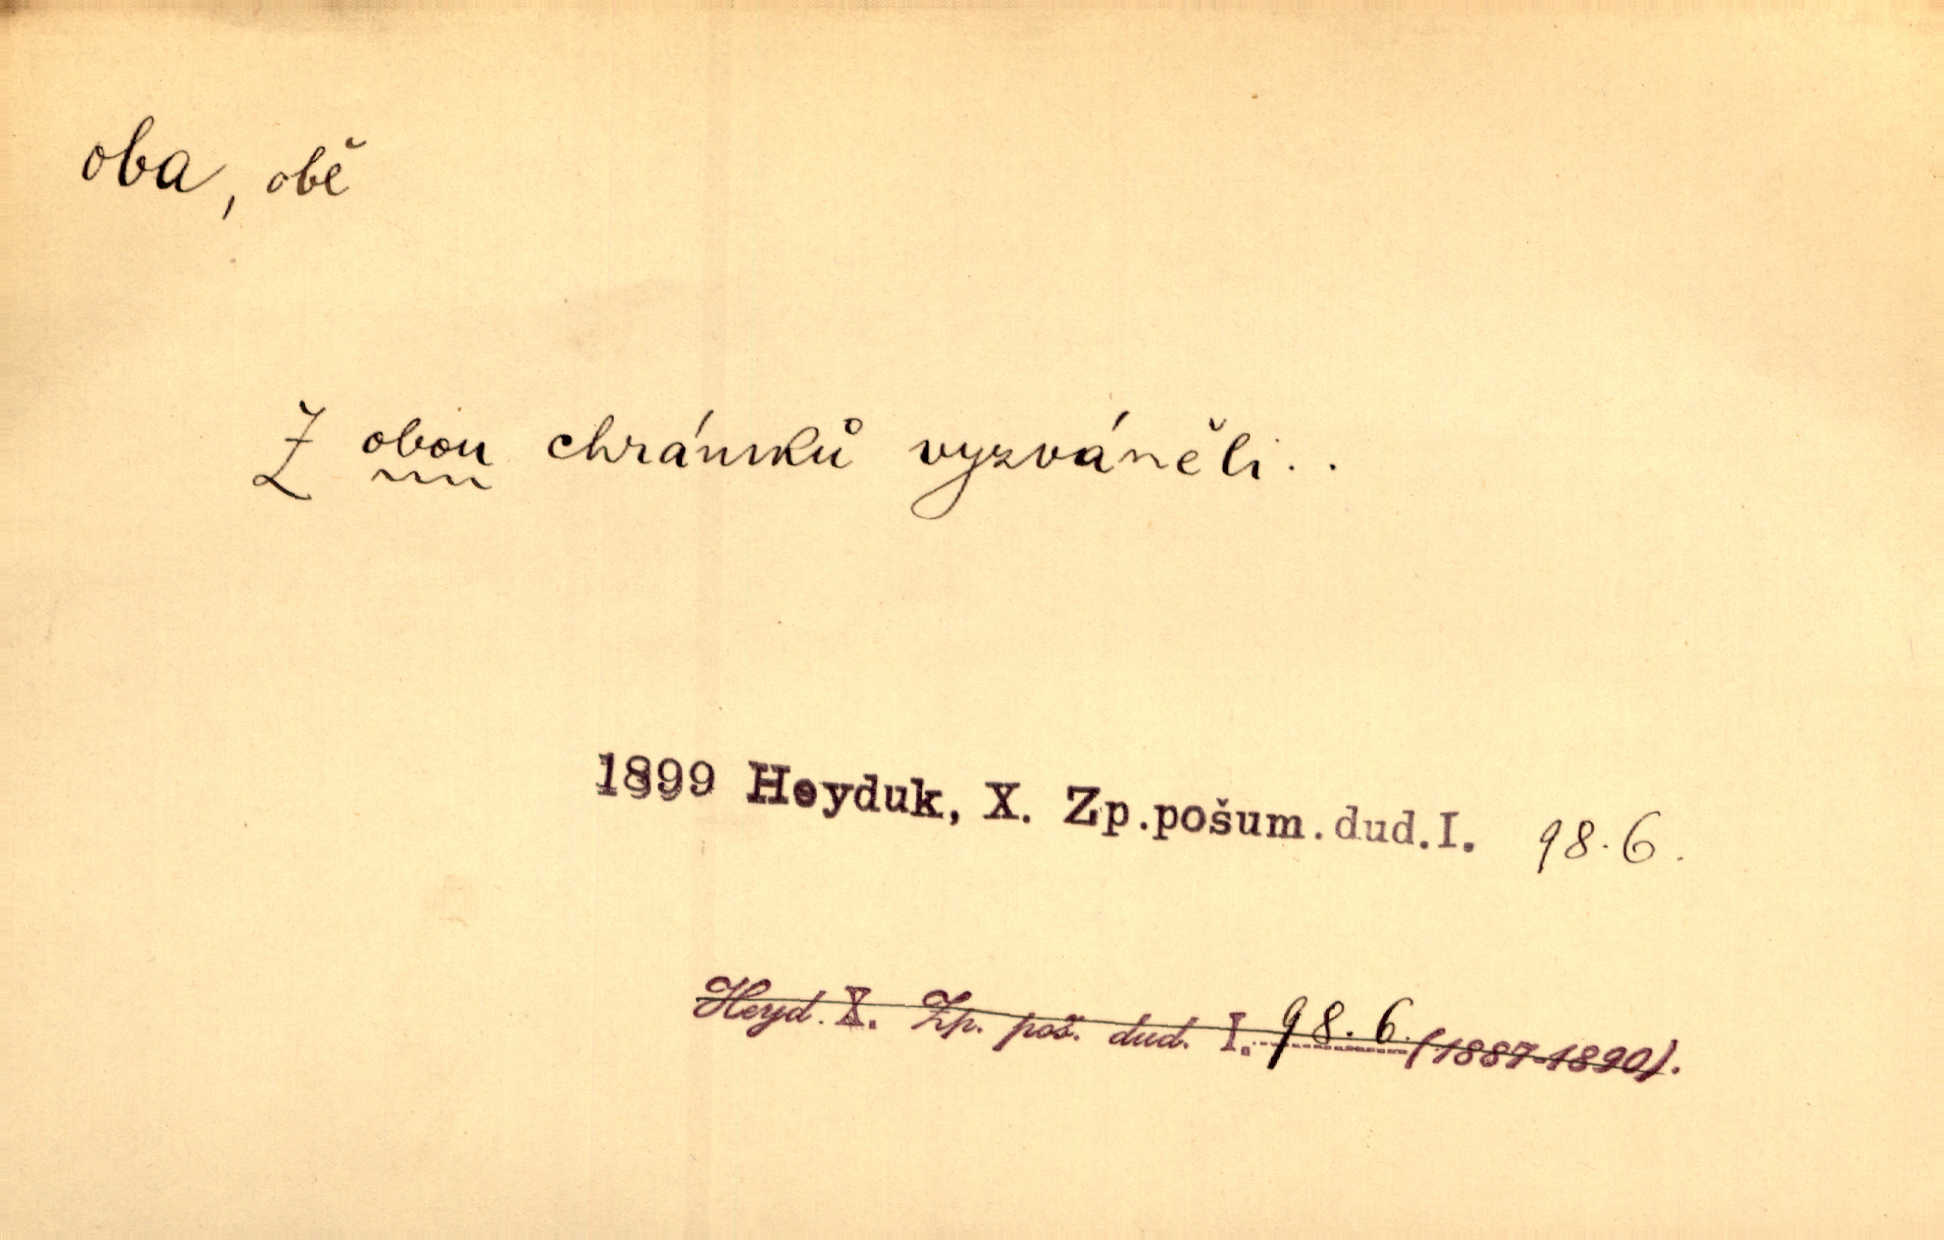 oba, obě
Z obou chrámků vyzváněli..
1899 Heyduk, X. Zp.pošum.dud.I. 98.6.
Heyd. X. Zp. poš. dud. I. 98.6. (1887-1890).